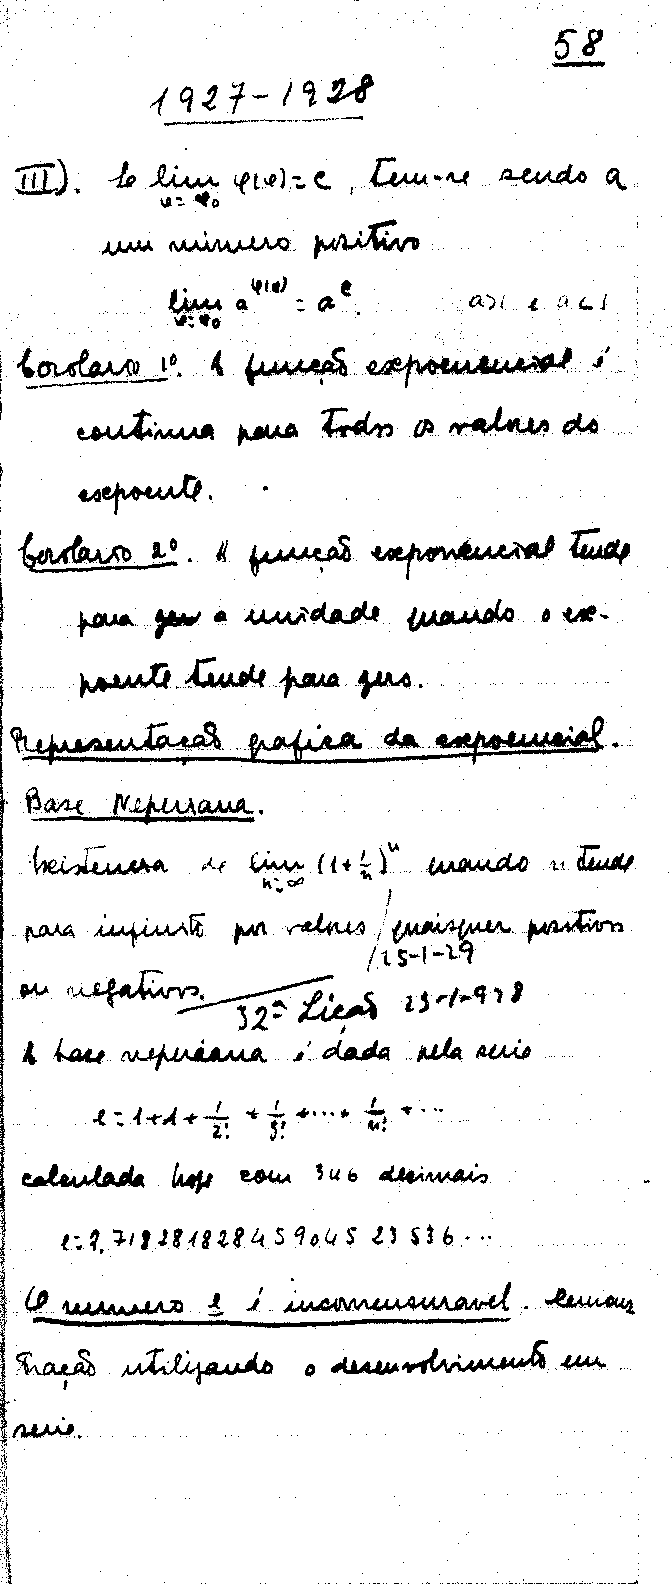 58
1927-1928
III). Se lim φ(x) = c, tem-se sendo a
um número positivo
lim a^φ(x) = a^c. a>1 e a<1
Corolario 1º. A função expoencial é
continua para todos os valores do
expoente.
Corolario 2º. A função exponencial tende
para a unidade quando o ex-
poente tende para zero.
Representação grafica da expoencial.
Base Neperiana.
Existencia de lim (1+1/n)^n quando n tende
n=∞
para infinito por valores / quaisquer positivos
/25-1-29
ou negativos.
32ª Lição 23-1-928
A base neperiana é dada pela serie
e = 1+1+1/2! + 1/3! + ... + 1/n! + ...
calculada hoje com 346 decimais
e=2,718281828459045 23536...
O numero e é incomensuravel. Demons
tração utilizando o desenvolvimento em
serie.